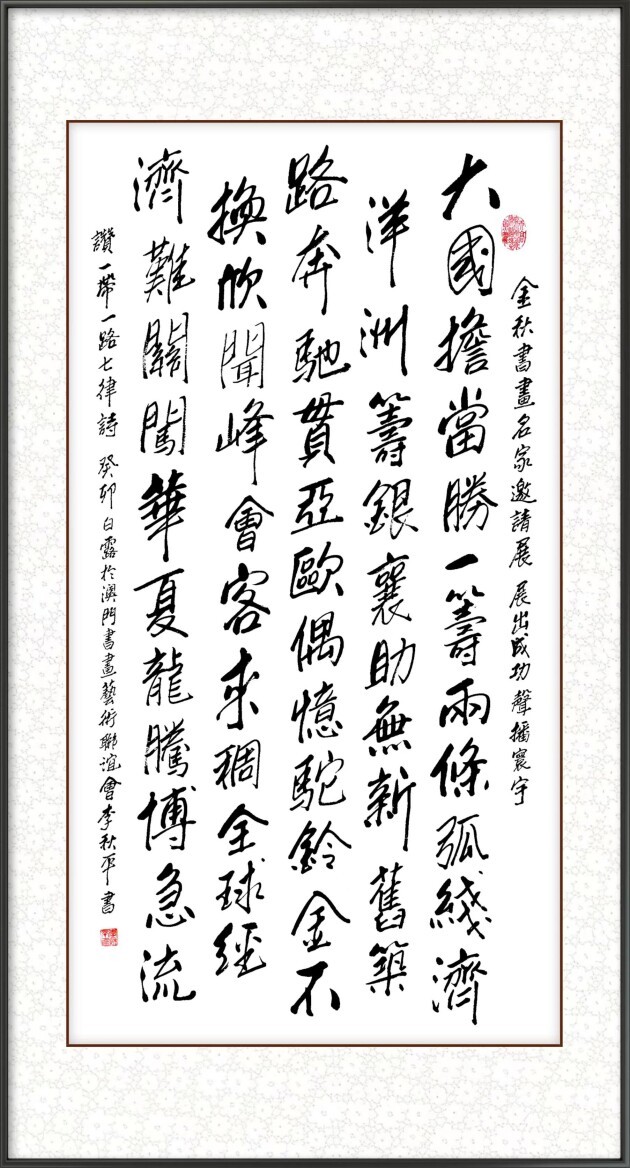 金秋書畫名家邀請展 展出成功聲播寰宇
大國擔當勝一籌兩條弧綫濟
洋洲籌銀襄助無新舊築
路奔馳貫亞歐偶憶駝鈴金不
換欣聞峰會客來稠全球經
濟難關闖華夏龍騰博急流
讚一帶一路七律詩 癸卯白露於澳門書畫藝術聯誼會李秋平書